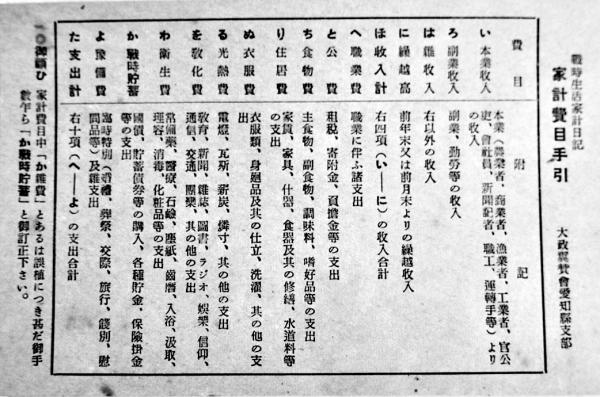 戰時生活家計日記
家計費目手引
大政翼贊會愛知縣支部
費目 附記
い 本業收入 本業（農業者、商業者、漁業者、工業者、官公
吏、會社員、新聞記者、職工、運轉手等）より
の收入
ろ 副業收入 副業、勤勞等の收入
は 雜收入 右以外の收入
に 繰越高 前年末又は前月末よりの繰越收入
ほ 收入計 右四項（い—に）の收入合計
へ 職業費 職業に伴ふ諸支出
と 公費 租税、寄附金、頁擔金等の支出
ち 食物費 主食物、副食物、調味料、嗜好品等の支出
り 住居費 家賃、家具、什器、食器及其の修繕、水道料等
の支出
ぬ 衣服費 衣服類、身廻品及其の仕立、洗濯、其の他の支
出
る 光熱費 電燈、瓦斯、薪炭、燐寸、其の他の支出
を 敎化費 敎育、新聞、雜誌、圖書、ラジオ、娛樂、信仰、
通信、交通、團欒、其の他の支出
わ 衛生費 常備藥、醫療、石鹼、塵紙、齒磨、入浴、汲取、
理容、消毒、化粧品等の支出
か 戰時貯蓄 國債、貯蓄債券等の購入、各種貯金、保險掛金
等の支出
よ 豫備費 臨時特別（婚禮、葬祭、交際、旅行、餞別、慰
問品等）及雜支出
た 支出計 右十項（へ—よ）の支出合計
一〇御願ひ 家計費目中「か雜費」とあるは誤植につき甚だ御手
數乍ら「か戰時貯蓄」と御訂正下さい。